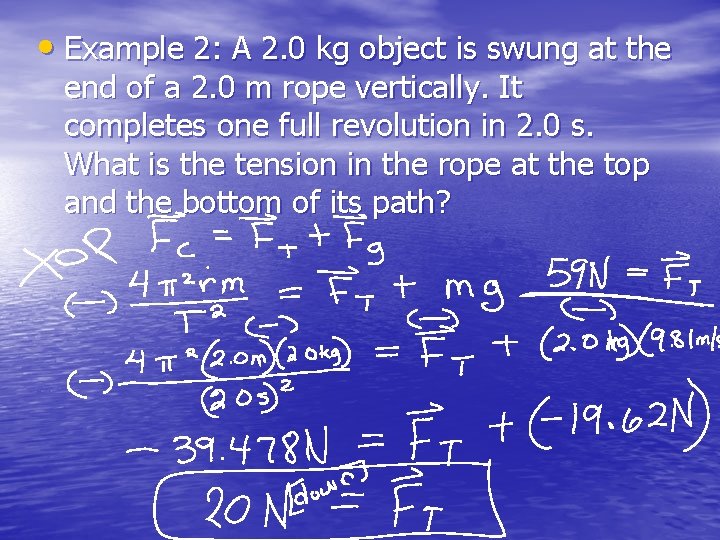 • Example 2: A 2.0 kg object is swung at the
end of a 2.0 m rope vertically. It
completes one full revolution in 2.0 s.
What is the tension in the rope at the top
and the bottom of its path?
TOP F⃗c = F⃗T + F⃗g
(-) 4π²rm / T² = F⃗T + mg
59N = F⃗T
(-) (-)
(-) 4π²(2.0m)(2.0kg) / (2.0s)² = F⃗T + (2.0kg)(9.81m/s
- 39.478N = F⃗T + (-19.62N)
20N[down] = F⃗T